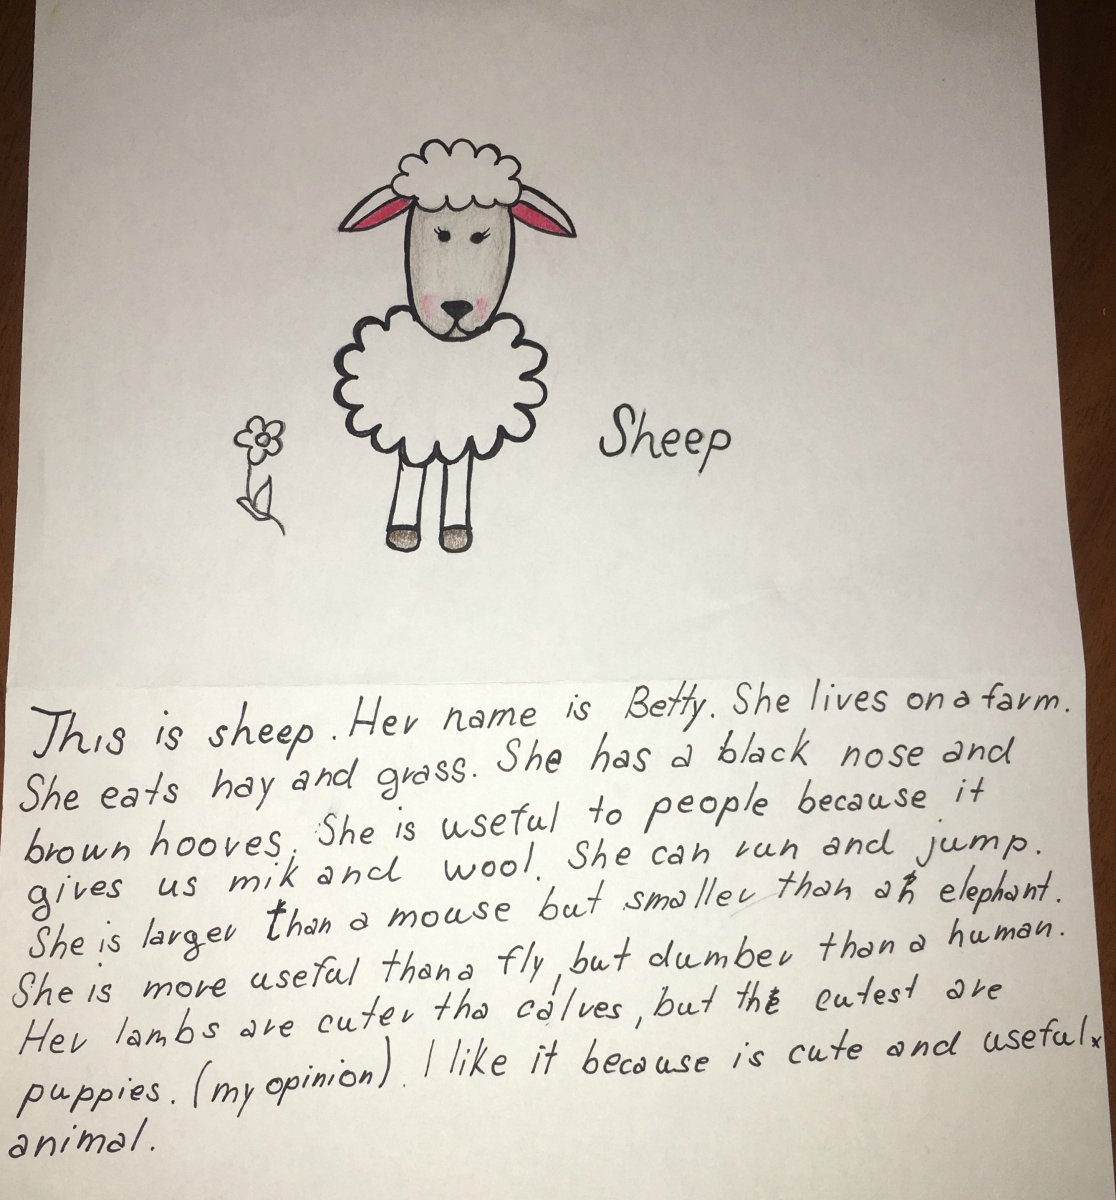 Sheep
This is sheep. Her name is Betty. She lives on a farm.
She eats hay and grass. She has a black nose and
brown hooves. She is useful to people because it
gives us mik and wool. She can run and jump.
She is larger than a mouse but smaller than an elephant.
She is more useful than a fly, but dumber than a human.
Her lambs are cuter tha calves, but the cutest are
puppies. (my opinion). I like it because is cute and useful
animal.